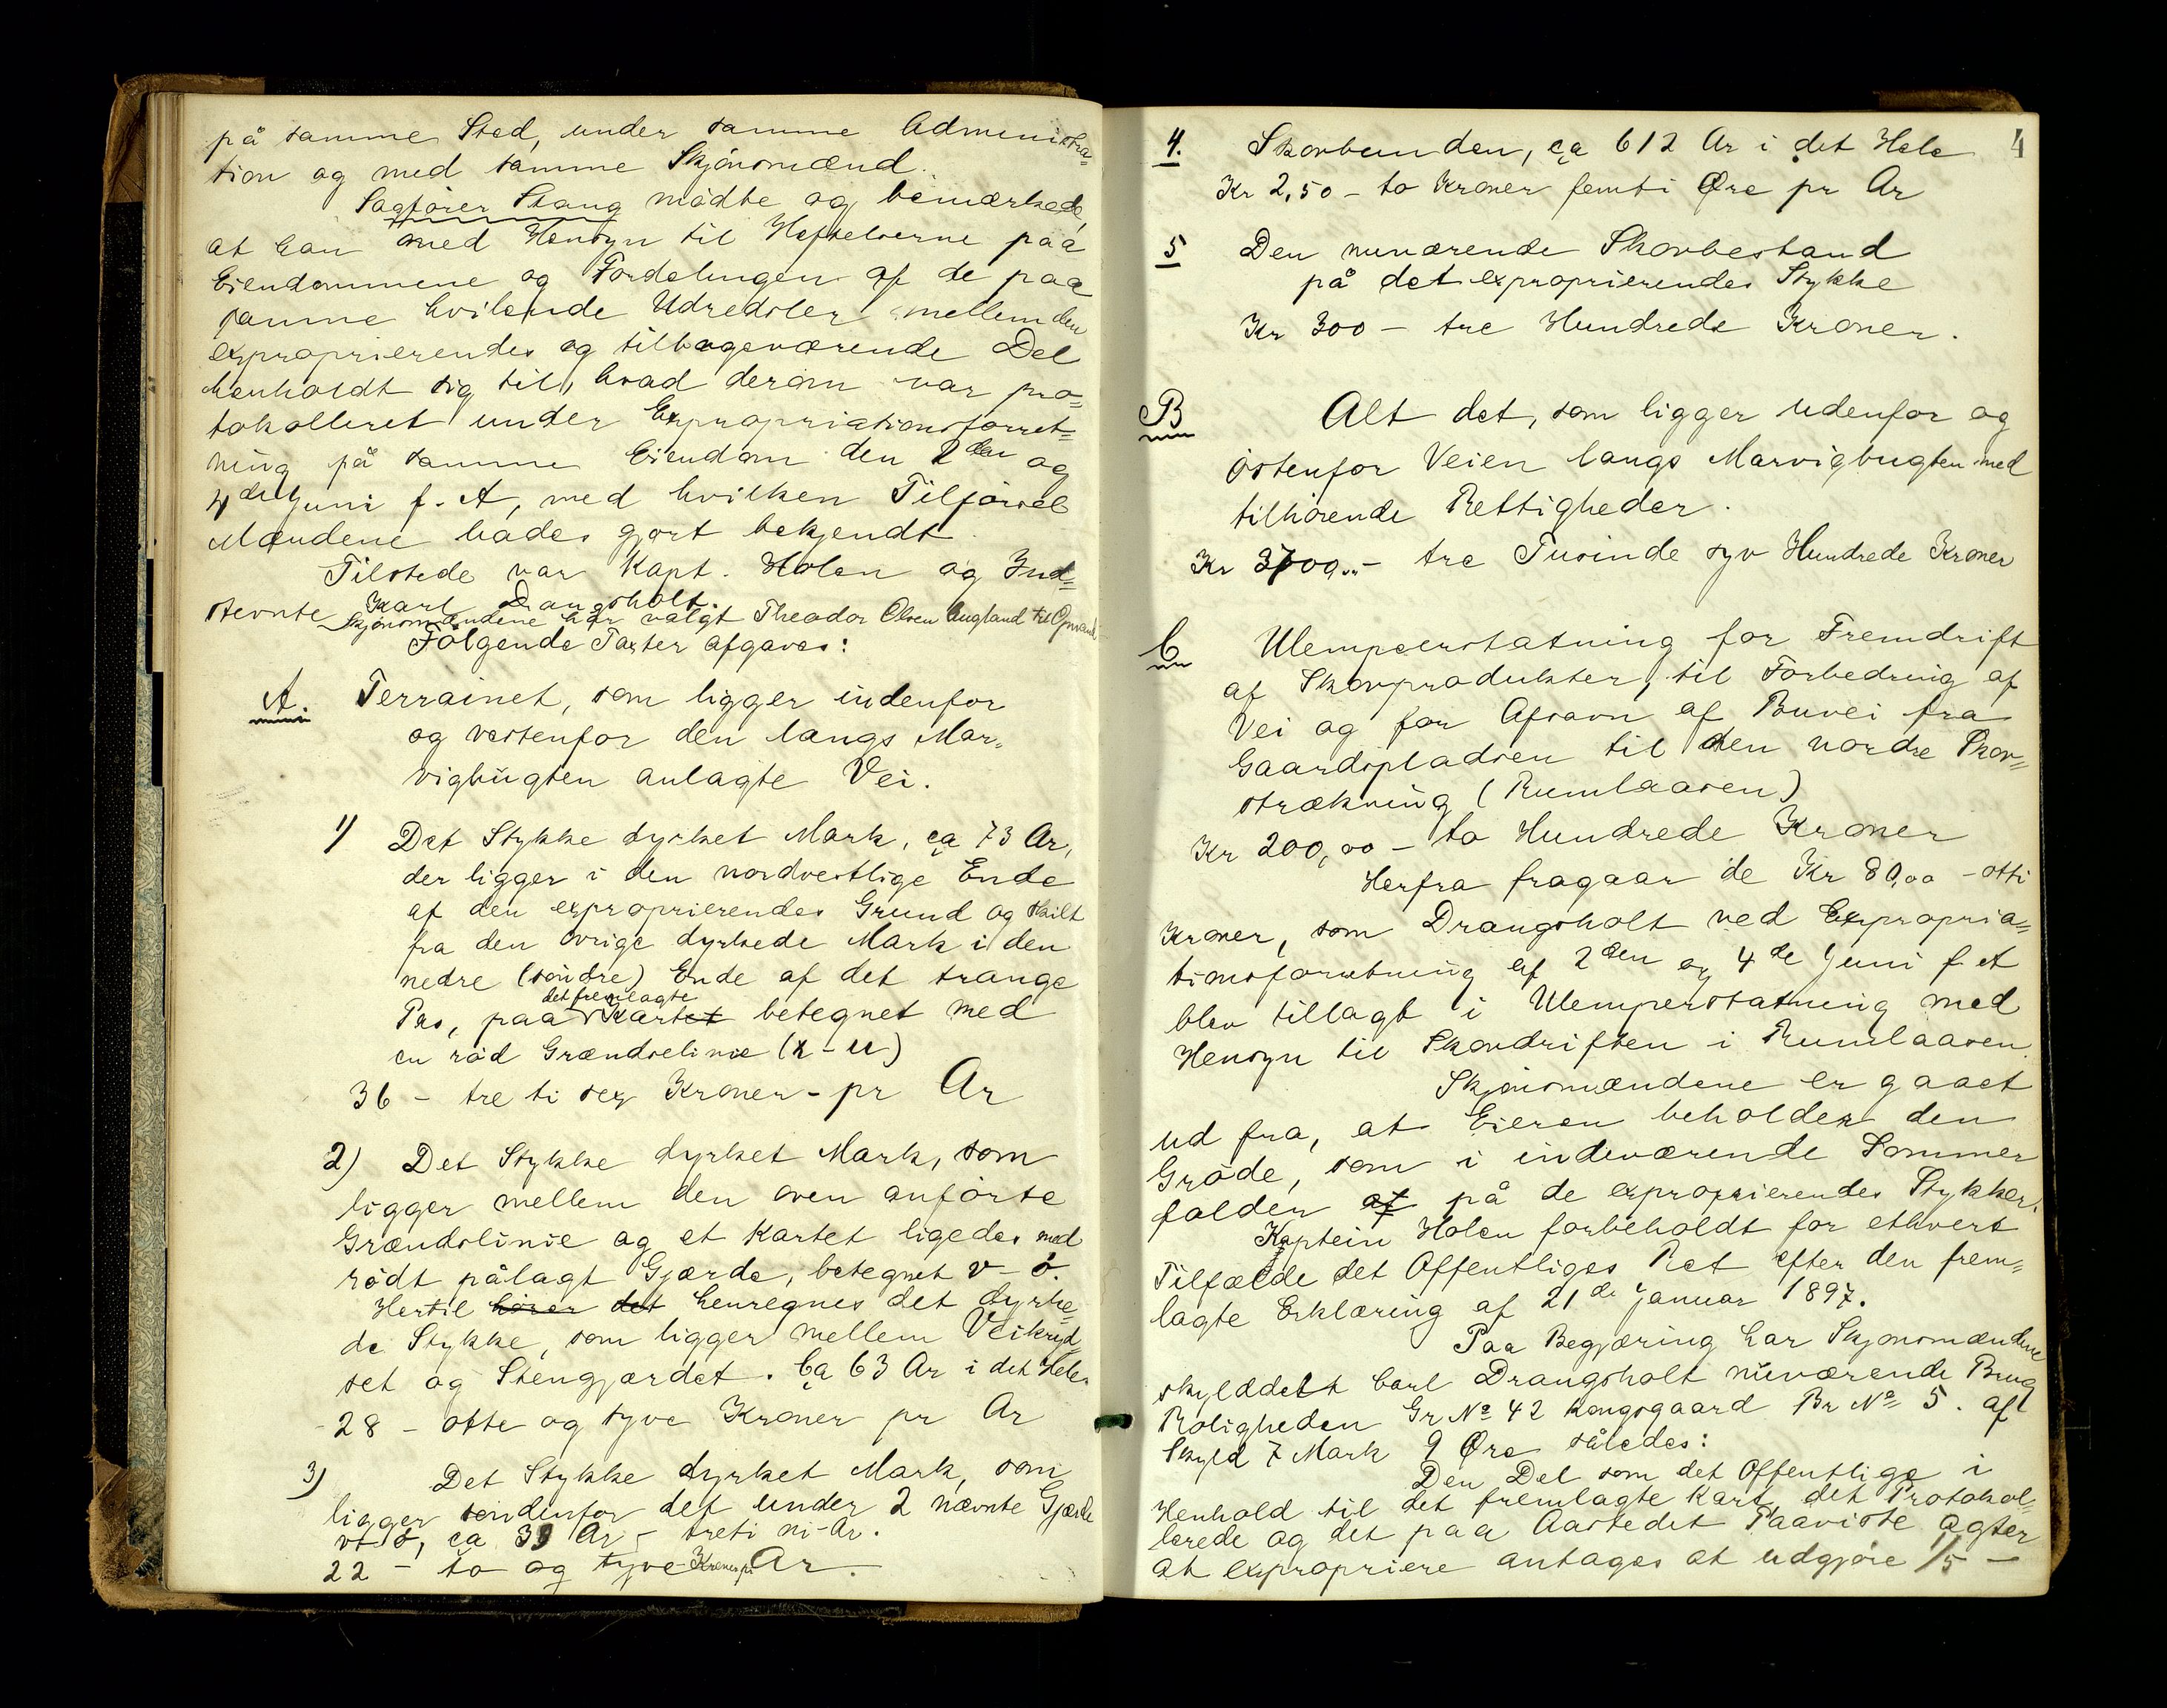 på samme Sted, under samme Administra=
tion og med samme Skjönsmænd.
Sagförer Stang mödte og bemærkede,
at han med Hensyn til Heftelserne paa
Eiendommene og Fordelingen af de paa
samme hvilende Udredsler mellem den
exproprierendes og tilbageværende Del
henholdt sig til, hvad derom var pro=
tokolleret under Expropriationsforret=
ning på samme Eiendom den 2den og
4de Juni f. A, med hvilken Tilförsel
Mændene hades gjort bekjendt.
Tilstede var Kapt. Holen og Ind=
stevnte Karl Drangsholt.
Skjönsmændene har valgt Theodor Olsen Augland til Opmand
Fölgende Taxter afgaves:
A. Terrainet, som ligger indenfor
og vestenfor den langs Mar=
vigbugten anlagte Vei.
1) Det Stykke dyrket Mark, ca 73 Ar,
der ligger i den nordvestlige Ende
af den exproprierendes Grund og skilt
fra den övrige dyrkede Mark i den
nedre (söndre) Ende af det trange
Pas, paa det fremlagte Kartet betegnet med
en röd Grændselinie (x-u)
36 - tre ti sex Kroner - pr Ar
2) Det Stykke dyrket Mark, som
ligger mellem den oven anförte
Grændslinie og et Kartet ligedes med
rödt pålagt Gjærde, betegnet v-ö.
Hertil hörer det henregnes det dyrke=
de Stykke, som ligger mellem Veikryd=
set og Stengjærdet. Ca 63 Ar i det Hele.
28 - otte og tyve Kroner pr Ar
3) Det Stykke dyrket Mark, som
ligger söndenfor det under 2 nævnte Gjærde
v-ö, ca 39 Ar - treti ni-Ar.
22 - to og tyve Kroner pr Ar.
4
4. Skovbunden, ca 612 Ar i det Hele
Kr 2,50 - to Kroner femti Øre pr Ar
5 Den nuværende Skovbestand
på det exproprierendes Stykke
Kr 300 - tre Hundrede Kroner.
B Alt det, som ligger udenfor og
östenfor Veien langs Marvigbugten med
tilhörende Rettigheder.
Kr 3700.. - tre Tusinde syv Hundrede Kroner
C Ulempeerstatning for Fremdrift
af Skovprodukter, til Forbedring af
Vei og for Afsavn af Buvei fra
Gaardspladsen til den nordre Skov=
strækning (Rumlaasen)
Kr 200,00 - to Hundrede Kroner
Herfra fragaar de Kr 80,00 - otti
Kroner, som Drangsholt ved Expropria=
tionsforretning af 2den og 4de Juni f A
blev tillagt i Ulemperstatning med
Hensyn til Skovdriften i Rumlaasen.
Skjönsmændene er gaaet
ud fra, at Eieren beholder den
Gröde, som i indeværende Sommer
falder af på de exproprierendes Stykker.
Kaptein Holen forbeholdt for ethvert
Tilfælde det Offentliges Ret efter den frem=
lagte Erklæring af 21de Januar 1897.
Paa Begjæring har Skjönsmændene
skylddelt Carl Drangsholt nuværende Brug
Roligheden Gr No 42 Kongsgaard Br No 5. af
Skyld 7 Mark 9 Øre således:
Den Del som det Offentlige i
Henhold til det fremlagte Kart, det Protokol=
lerede og det paa Aastedet Paaviste agter
at expropriere antages at udgjöre 1/5 -